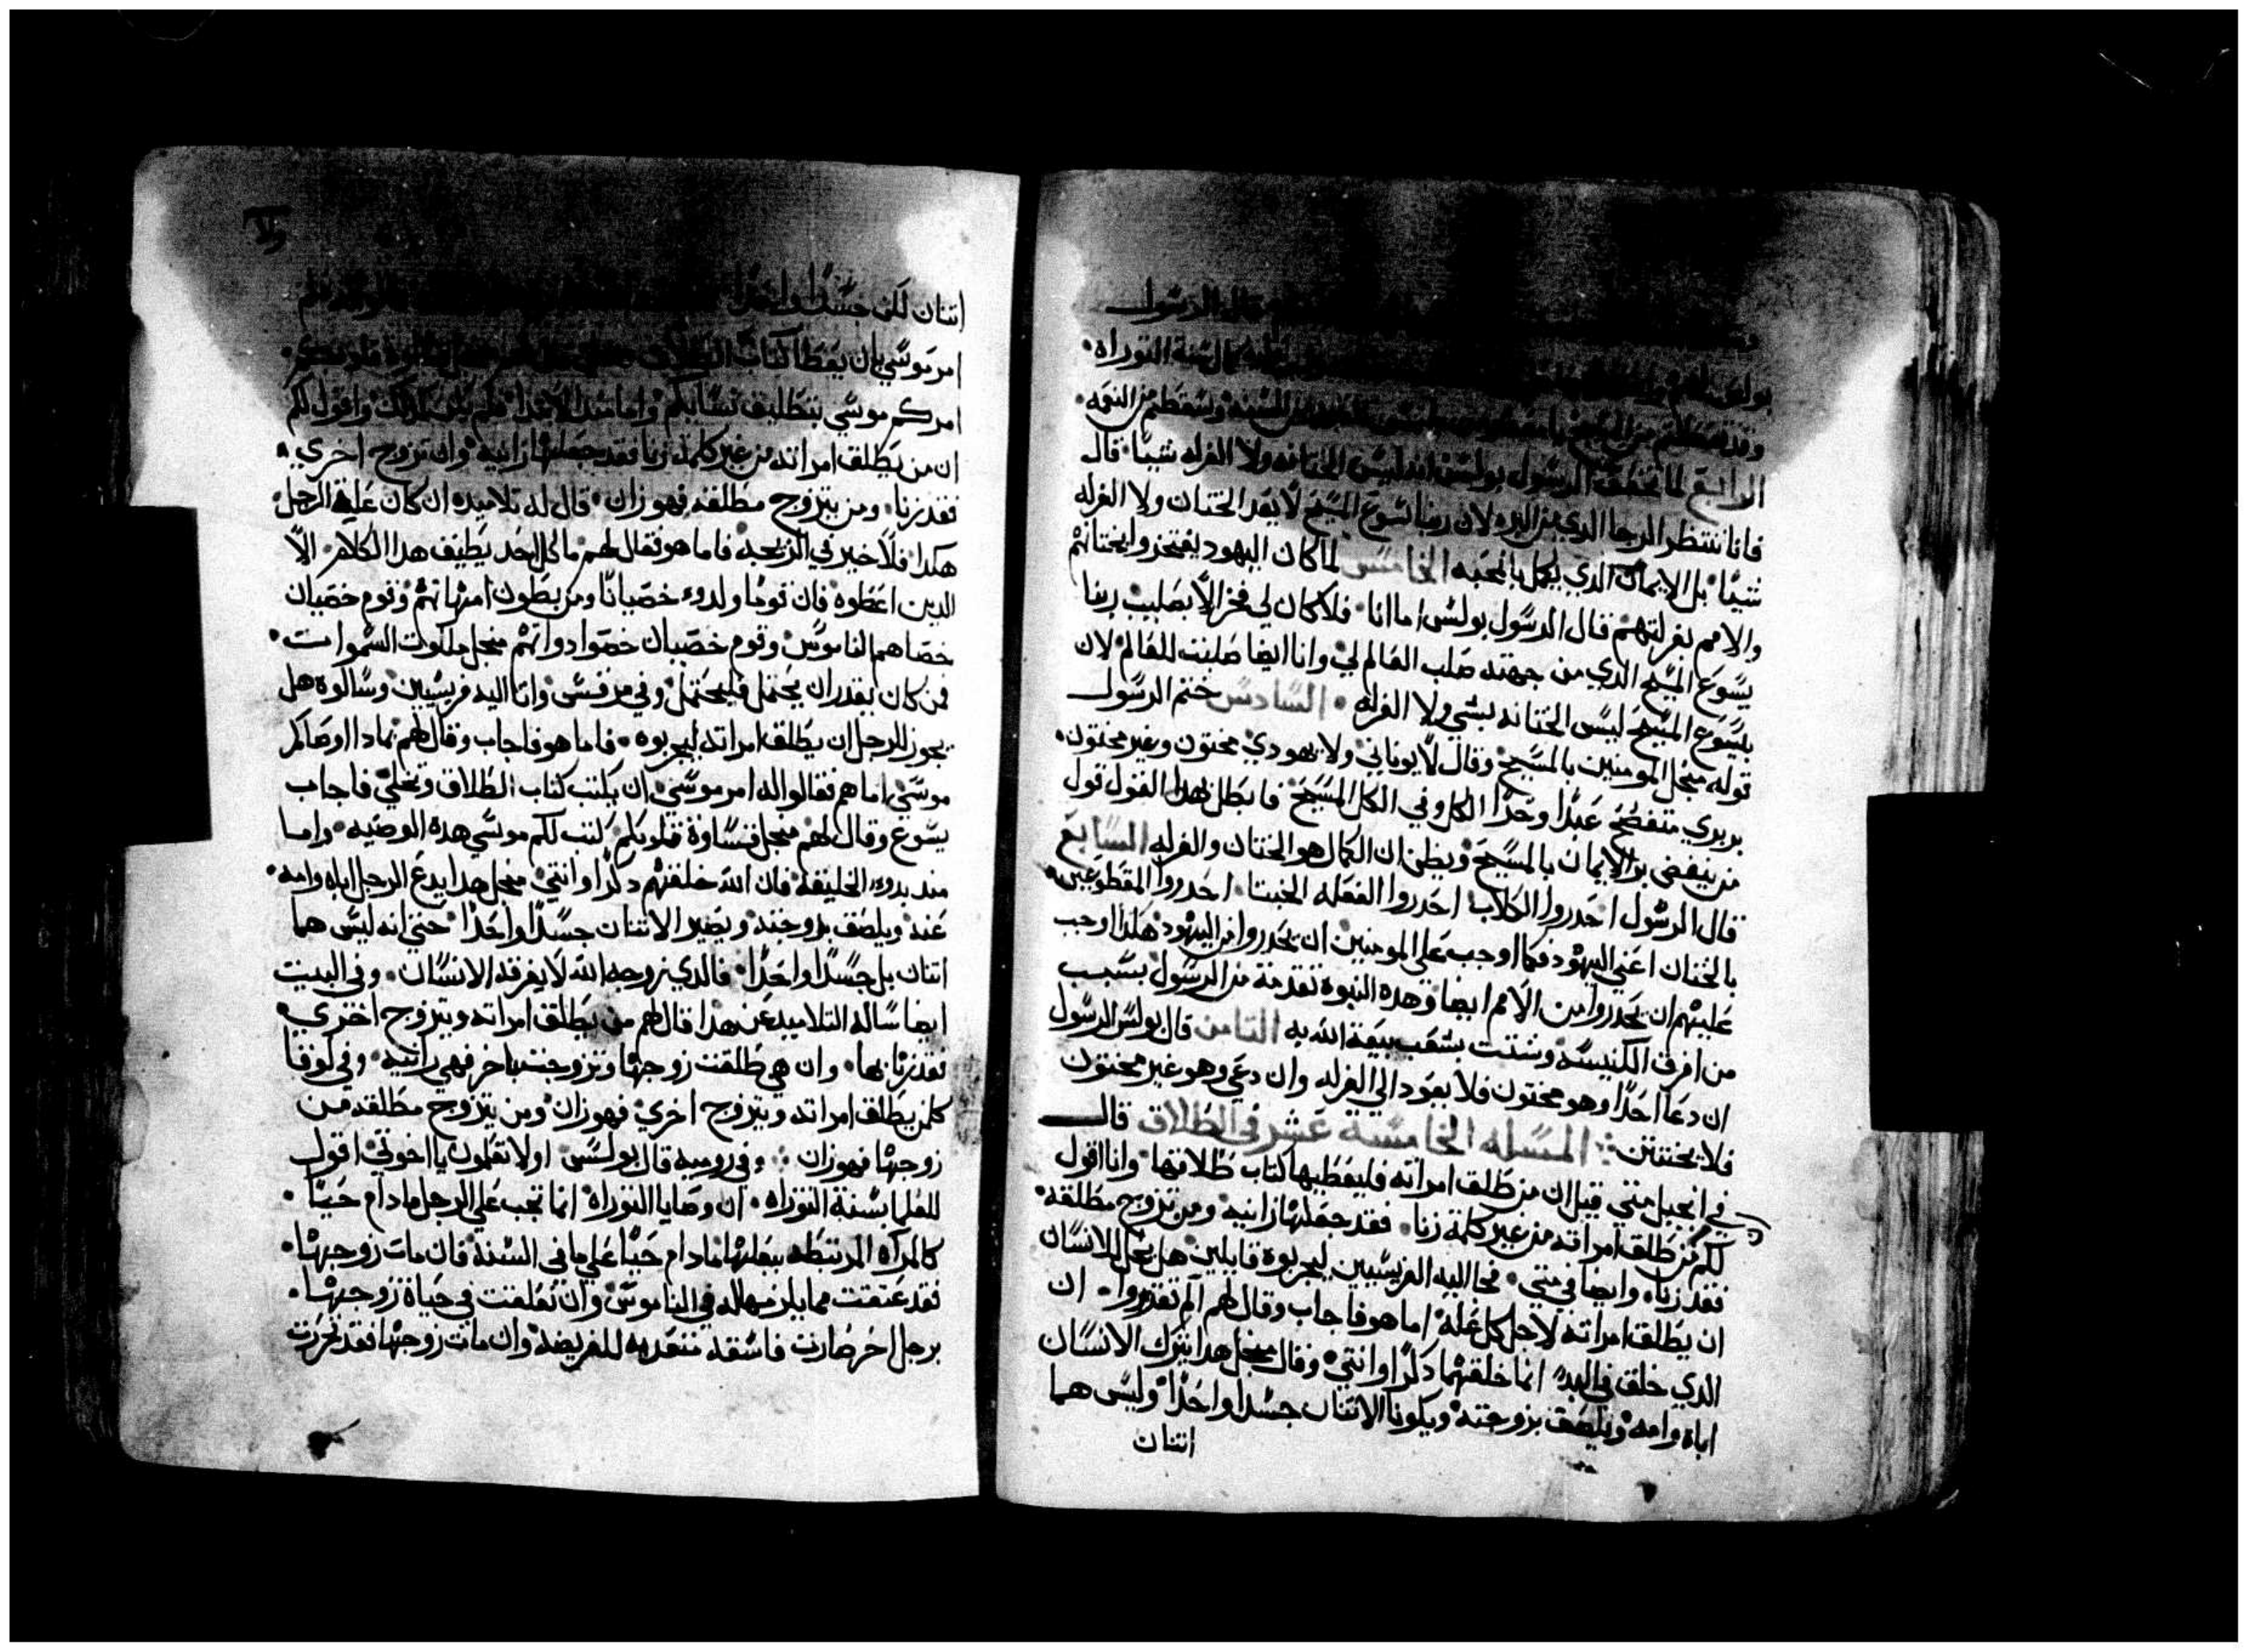 قال الرسول
كمال سنة التوراه
وسقطتم من النعمه
الرابع لما تحقق الرسول بولس انه ليس الختانه ولا الغرله شيا قال
فانا ننتظر الرجا الدي من البره لان ربنا يسوع المسيح لا يعد الختان ولا الغرله
شيا بل الايمان الدي يكمل بالمحبه الخامس لما كان اليهود يفتخروا بختانتهم
والامم بغرلتهم قال الرسول بولس اما انا فلا كان لي فخر الا بصليب ربنا
يسوع المسيح الدي من جهته صلب العالم لي وانا ايضا صلبت للعالم لان
بيسوع المسيح ليس الختانه بشي ولا الغرله السادس ختم الرسول
قوله منجل المومنين بالمسيح وقال لا يوناني ولا يهودي مختون وغير مختون
بربري متفضح عبدا وحدا الكل وفي الكل المسيح فابطل بهدا القول قول
من ينقض بر الايمان بالمسيح ويظن ان الكمال هو الختان والغرله السابع
قال الرسول احدروا الكلاب احدروا الفعله الخبثا احدروا المقطوعين
بالختان اعني اليهود فكما اوجب على المومنين ان يحدروا من اليهود هكدا اوجب
عليهم ان يحدروا من الامم ايضا وهده النبوة تقدمة من الرسول بسبب
من افرق الكنيسه وشتت بشعب بيعة الله به التامن قال بولس الرسول
ان دعا احدا وهو مختون فلا يعود الي الغرله وان دعي وهو غير مختون
فلا يختتن المسله الخامسة عشر في الطلاق قال
في انجيل متي قيل ان من طلق امراته فليعطيها كتاب طلاقها وانا اقول
لكم من طلق امراته من غير كلمة زنا فقد جعلها زانيه ومن تزوج مطلقه
فقد زنا وايضا في متي فجا اليه الفريسيين ليجربوه قايلين هل يحل للانسان
ان يطلق امراته لاجل كل علة اما هو فاجاب وقال لهم الم تقدروا ان
الدي خلق في البدء انما خلقهما دكرا وانتي وقال منجل هدا يترك الانسان
اباه وامه ويلصق بزوجته ويكونا الاتنان جسدا واحدا وليس هما
اتنان
اتنان لكن جسدا واحدا
امر موسي بان يعطا كتاب الطلاق
امركم موسي بتطليق نسايكم واما مند الابتدا فلم يكن كدلك واقول لكم
ان من يطلق امراته من غير كلمة زنا فقد جعلها زانيه وان تزوج اخري
فقد زنا ومن يتزوج مطلقه فهو زان قال له تلاميده ان كان علة الرجل
هكدا فلا خير في الزيجه فاما هو فقال لهم ما كل احد يطيق هدا الكلام الا
الدين اعطوه فان قوما ولدوء خصيانا ومن بطون امهاتهم وقوم خصيان
خصاهم الناموس وقوم خصيان خصوا دواتهم منجل ملكوت السموات
فمن كان يقدر ان يحتمل فليحتمل وفي مرقس واتا اليه فريسيين وسالوه هل
يجوز للرجل ان يطلق امراته ليجربوه فاما هو فاجاب وقال لهم بمادا اوصاكم
موسي اما هم فقالوا له امر موسي ان يكتب كتاب الطلاق وتخلي فاجاب
يسوع وقال لهم منجل قساوة قلوبكم كتب لكم موسي هده الوصيه واما
مند بدوء الخليقة فان الله خلقهم دكرا وانتي منجل هدا يدع الرجل اباه وامه
عنه ويلصق بزوجته ويصير الاتنان جسدا واحدا حتي انه ليس هما
اتنان بل جسدا واحدا فالدي زوجه الله لا يفرقه الانسان وفي البيت
ايضا ساله التلاميد عن هدا قال لهم من يطلق امراته ويتزوج اخري
فقد زنا بها وان هي طلقت زوجها وتزوجت باخر فهي زانيه وفي لوقا
كلمن يطلق امراته ويتزوج اخري فهو زان ومن يتزوج مطلقه من
زوجها فهو زان وفي روميه قال بولس اولا تعلمون يا اخوتي اقول
للعلما بسنة التوراه ان وصايا التوراه انما تجب علي الرجل مادام حيا
كالمراه المرتبطه ببعلها مادام حيا علي ما في السنة فان مات زوجها
فقد عتقت مما يلزمها له في الناموس وان تعلقت في حياة زوجها
برجل اخر صارت فاسقه متعديه للفريضه وان مات زوجها فقد تحررت